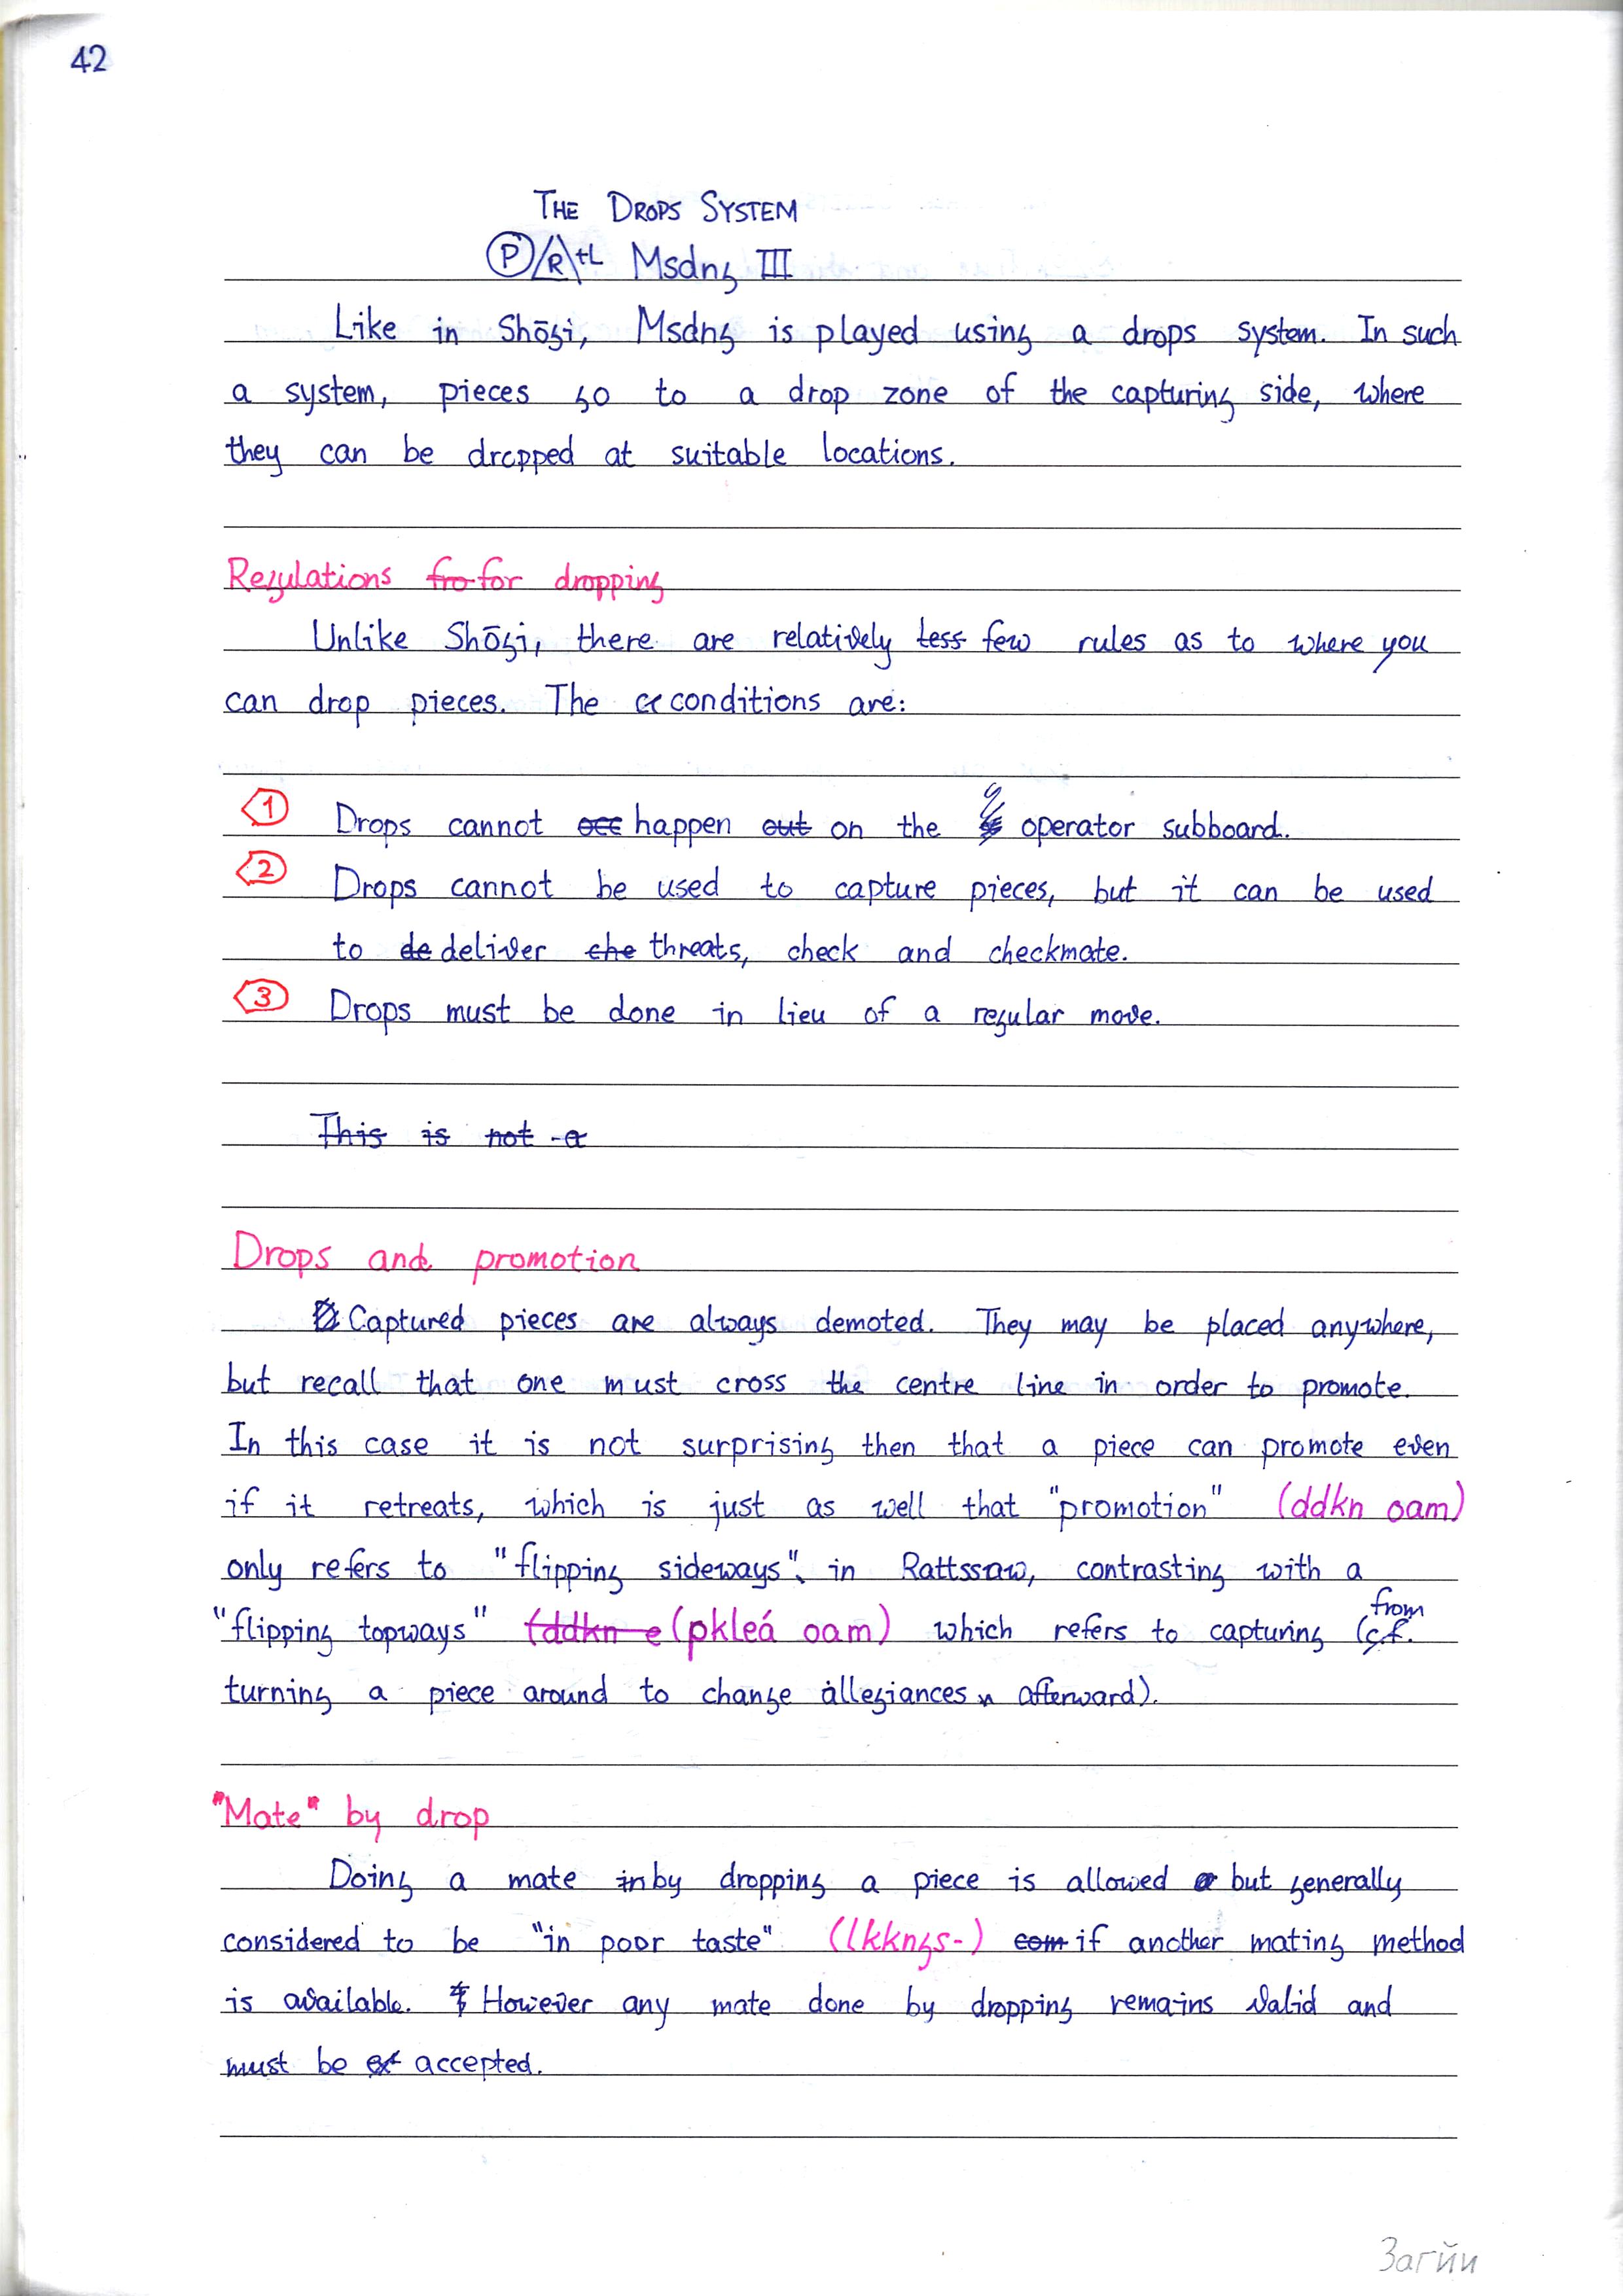 42
THE DROPS SYSTEM
P/R+L Msdng III
Like in Shōgi, Msdng is played using a drops system. In such
a system, pieces go to a drop zone of the capturing side, where
they can be dropped at suitable locations.
Regulations fro for dropping
Unlike Shōgi, there are relatively less few rules as to where you
can drop pieces. The conditions are:
1 Drops cannot occ happen out on the operator subboard.
2 Drops cannot be used to capture pieces, but it can be used
to de deliver che threats, check and checkmate.
3 Drops must be done in lieu of a regular move.
This is not a
Drops and promotion
Captured pieces are always demoted. They may be placed anywhere,
but recall that one must cross the centre line in order to promote.
In this case it is not surprising then that a piece can promote even
if it retreats, which is just as well that "promotion" (ddkn oam)
only refers to "flipping sideways" in Rattssaw, contrasting with a
from
"flipping topways" (ddkn e (pkleá oam) which refers to capturing (c.f.
turning a piece around to change allegiances afterward).
"Mate" by drop
Doing a mate in by dropping a piece is allowed but generally
considered to be "in poor taste" (lkkngs-) com if another mating method
is available. However any mate done by dropping remains valid and
must be accepted.
Загйи